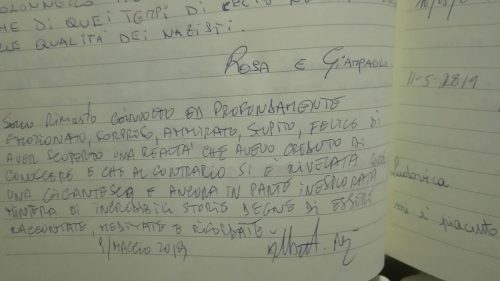 COLONNELLO
CHE DI QUEI TEMPI DI CERTO
LE QUALITÀ DEI NAZISTI.
ROSA E GIAMPAOLO
SONO RIMASTO COINVOLTO ED PROFONDAMENTE
EMOZIONATO, SORPRESO, AMMIRATO, STUPITO, FELICE DI
AVER SCOPERTO UNA REALTÀ CHE AVEVO CREDUTO DI
CONOSCERE E CHE AL CONTRARIO SI È RIVELATA
UNA GIGANTESCA E ANCORA IN PARTE INESPLORATA
MINIERA DI INCREDIBILI STORIE DEGNE DI ESSERE
RACCONTATE, MEDITATE E RICORDATE.
1/MAGGIO 2019
11-5-2019
Ludovica
mi è piaciuto